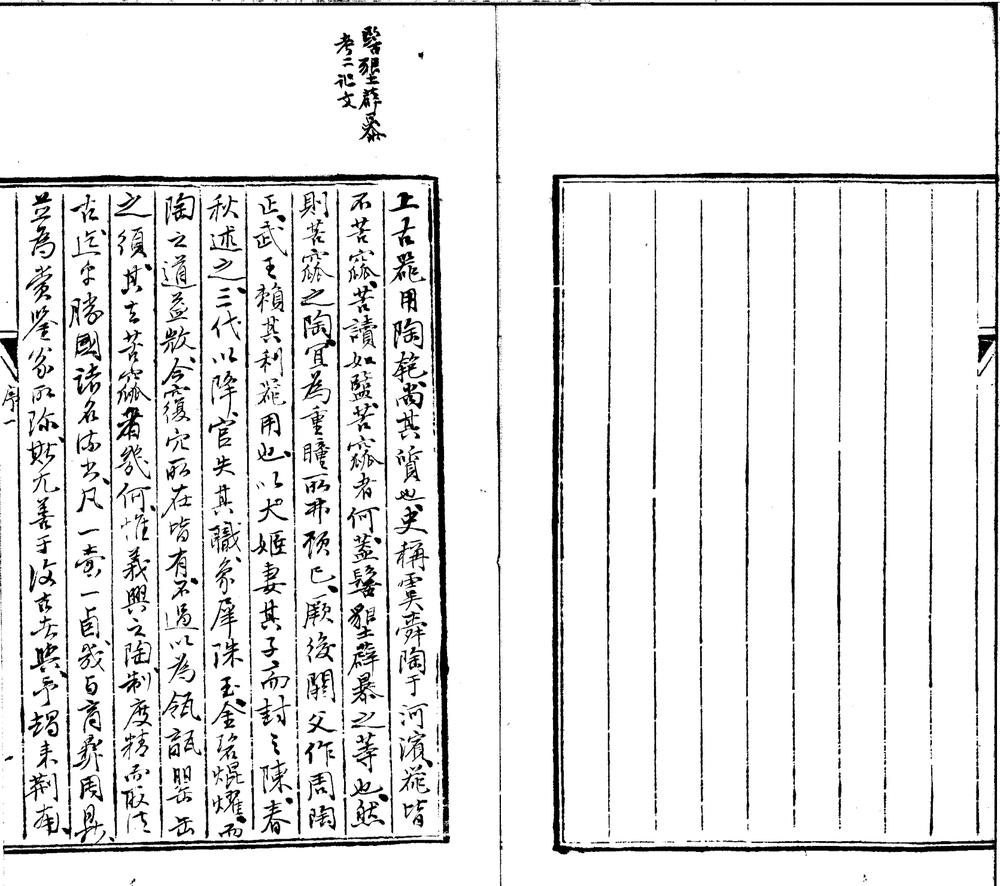 髻墾薜暴
考工記文
上古器用陶匏尚其質也史稱虞舜陶于河濱器皆
不苦窳苦讀如盬苦窳者何蓋髻墾薜暴之等也然
則苦窳之陶宜為重瞳所弗顧已厥後閼父作周陶
正武王賴其利器用也以大姬妻其子而封之陳春
秋述之三代以降官失其職象犀珠玉金碧焜燿而
陶之道益微今覆穴所在皆有不過以為瓴甋罌缶
之須其去苦窳者幾何惟義興之陶制度精而取法
古迄乎勝國諸名流出凡一壺一卣幾與商彝周鼎
並為賞鑒家所珍斯尤善于復古者與予朅來荊南
序
一